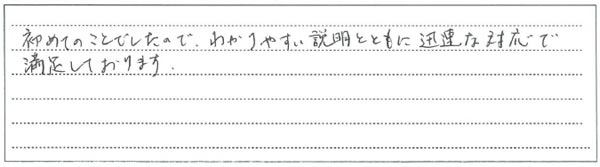 初めてのことでしたので、わかりやすい説明とともに迅速な対応で
満足しております.